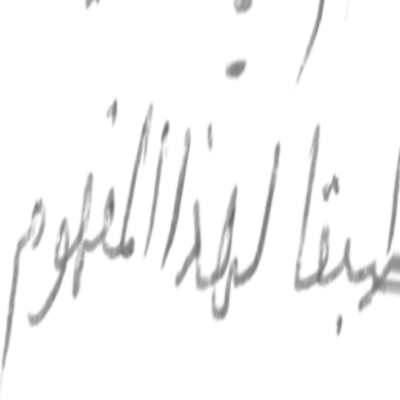 طبقا لهذا المفهوم